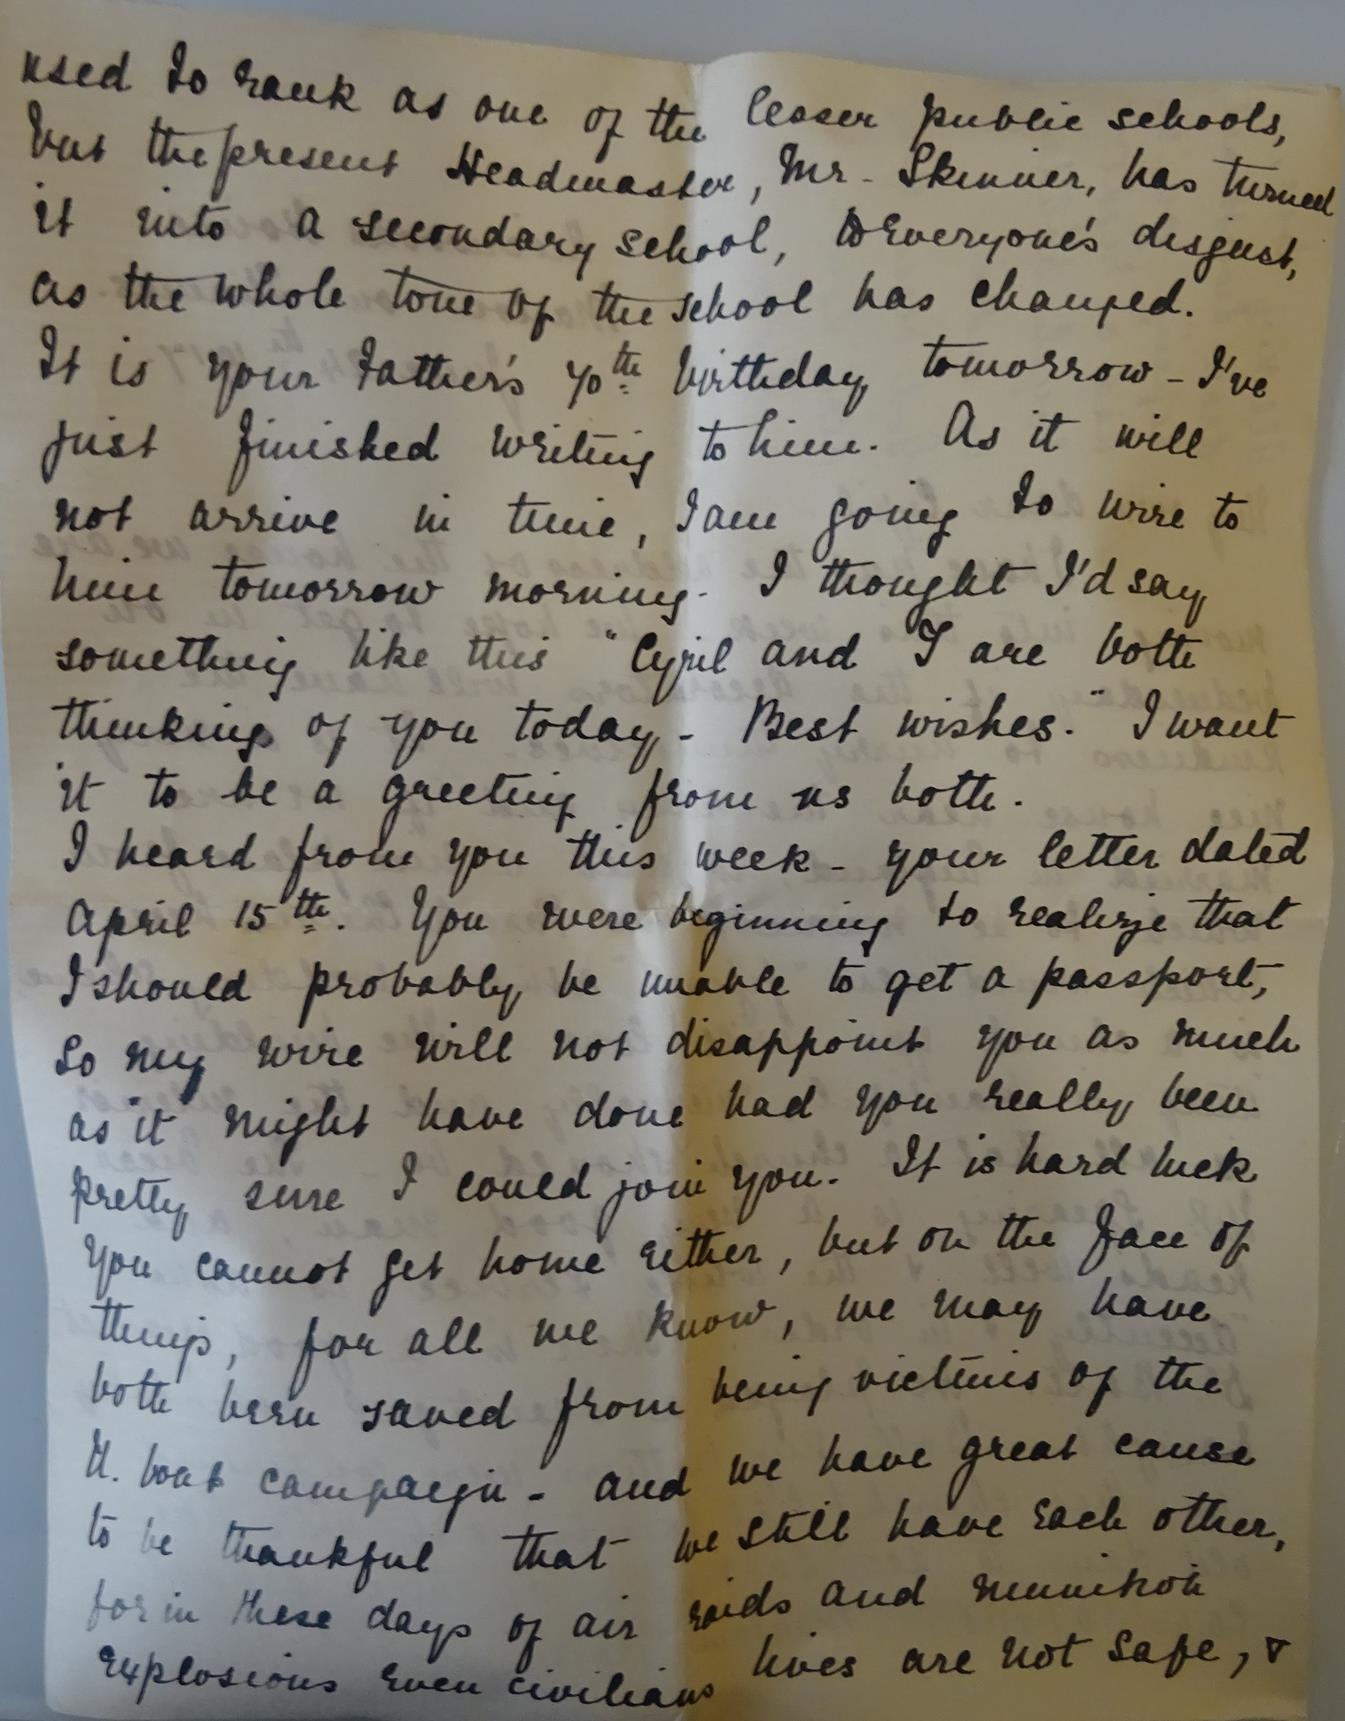 used to rank as one of the lesser public schools,
but the present Headmaster, Mr. Skinner, has turned
it into a secondary school, to everyone's disgust,
as the whole tone of the school has changed.
It is your Father's 70th birthday tomorrow - I've
just finished writing to him. As it will
not arrive in time, I am going to wire to
him tomorrow morning. I thought I'd say
something like this "Cyril and I are both
thinking of you today - Best wishes." I want
it to be a greeting from us both.
I heard from you this week - your letter dated
April 15th. You were beginning to realize that
I should probably be unable to get a passport,
so my wire will not disappoint you as much
as it might have done had you really been
pretty sure I could join you. It is hard luck
you cannot get home either, but on the face of
things, for all we know, we may have
both been saved from being victims of the
U. boat campaign - and we have great cause
to be thankful that we still have each other,
for in these days of air raids and munition
explosions even civilians lives are not safe, &